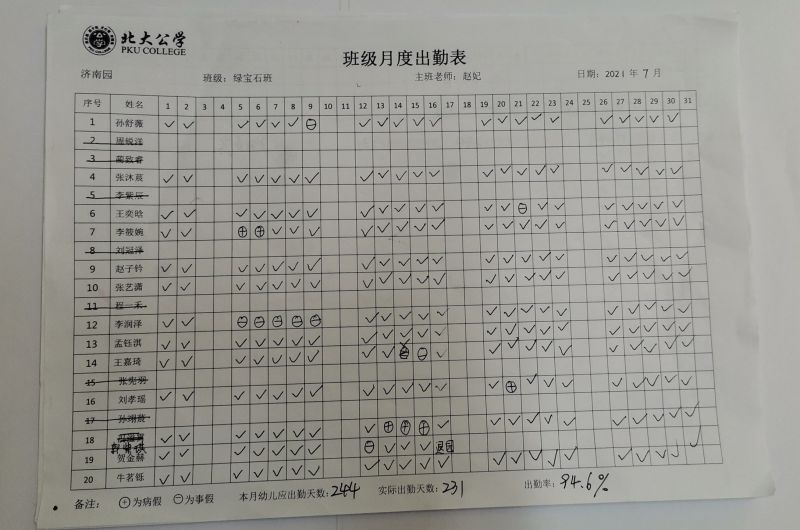 北大公学
PKU COLLEGE
班级月度出勤表
济南园 班级：绿宝石班 主班老师：赵妃 日期：2021 年 7 月
序号 姓名 1 2 3 4 5 6 7 8 9 10 11 12 13 14 15 16 17 18 19 20 21 22 23 24 25 26 27 28 29 30 31
1 孙舒薇 ✓ ✓ ✓ ✓ ✓ ✓ ⊖ ✓ ✓ ✓ ✓ ✓ ✓ ✓ ✓ ✓ ✓ ✓ ✓ ✓ ✓ ✓
2 周锐洋
3 蔺致睿
4 张沐宸 ✓ ✓ ✓ ✓ ✓ ✓ ✓ ✓ ✓ ✓ ✓ ✓ ✓ ✓ ✓ ✓ ✓ ✓ ✓ ✓ ✓ ✓
5 李紫辰
6 王奕晗 ✓ ✓ ✓ ✓ ✓ ✓ ✓ ✓ ✓ ✓ ✓ ✓ ✓ ✓ ⊖ ✓ ✓ ✓ ✓ ✓ ✓ ✓
7 李筱婉 ✓ ✓ ⊕ ⊕ ✓ ✓ ✓ ✓ ✓ ✓ ✓ ✓ ✓ ✓ ✓ ✓ ✓ ✓ ✓ ✓ ✓ ✓
8 刘冠泽
9 赵子钤 ✓ ✓ ✓ ✓ ✓ ✓ ✓ ✓ ✓ ✓ ✓ ✓ ✓ ✓ ✓ ✓ ✓ ✓ ✓ ✓ ✓ ✓
10 张艺潇 ✓ ✓ ✓ ✓ ✓ ✓ ✓ ✓ ✓ ✓ ✓ ✓ ✓ ✓ ✓ ✓ ✓ ✓ ✓ ✓ ✓ ✓
11 程一禾
12 李润泽 ✓ ✓ ⊖ ⊖ ⊖ ⊖ ⊖ ✓ ✓ ✓ ✓ ✓ ✓ ✓ ✓ ✓ ✓ ✓ ✓ ✓ ✓ ✓
13 孟钰淇 ✓ ✓ ✓ ✓ ✓ ✓ ✓ ✓ ✓ ✓ ✓ ✓ ✓ ✓ ✓ ✓ ✓ ✓ ✓ ✓ ✓ ✓
14 王嘉琦 ✓ ✓ ✓ ✓ ✓ ✓ ✓ ✓ ✓ ⊖ ✓ ✓ ✓ ✓ ✓ ✓ ✓ ✓ ✓ ✓ ✓
15 张宪羽
16 刘孝瑶 ✓ ✓ ✓ ✓ ✓ ✓ ✓ ✓ ✓ ✓ ✓ ✓ ✓ ⊕ ✓ ✓ ✓ ✓ ✓ ✓ ✓ ✓
17 孙翊宸
18 ✓ ✓ ✓ ✓ ✓ ✓ ✓ ✓ ⊕ ⊕ ⊕ ✓ ✓ ✓ ✓ ✓ ✓ ✓ ✓ ✓ ✓ ✓
19 贺金赫 ✓ ✓ ✓ ✓ ✓ ✓ ✓ ⊖ ✓ ✓ ✓ 退园
20 牛茗铄 ✓ ✓ ✓ ✓ ✓ ✓ ✓ ✓ ✓ ✓ ✓ ✓ ✓ ✓ ✓ ✓ ✓ ✓ ✓ ✓ ✓ ✓
备注： ⊕为病假 ⊖为事假 本月幼儿应出勤天数：244 实际出勤天数：231 出勤率：94.6%